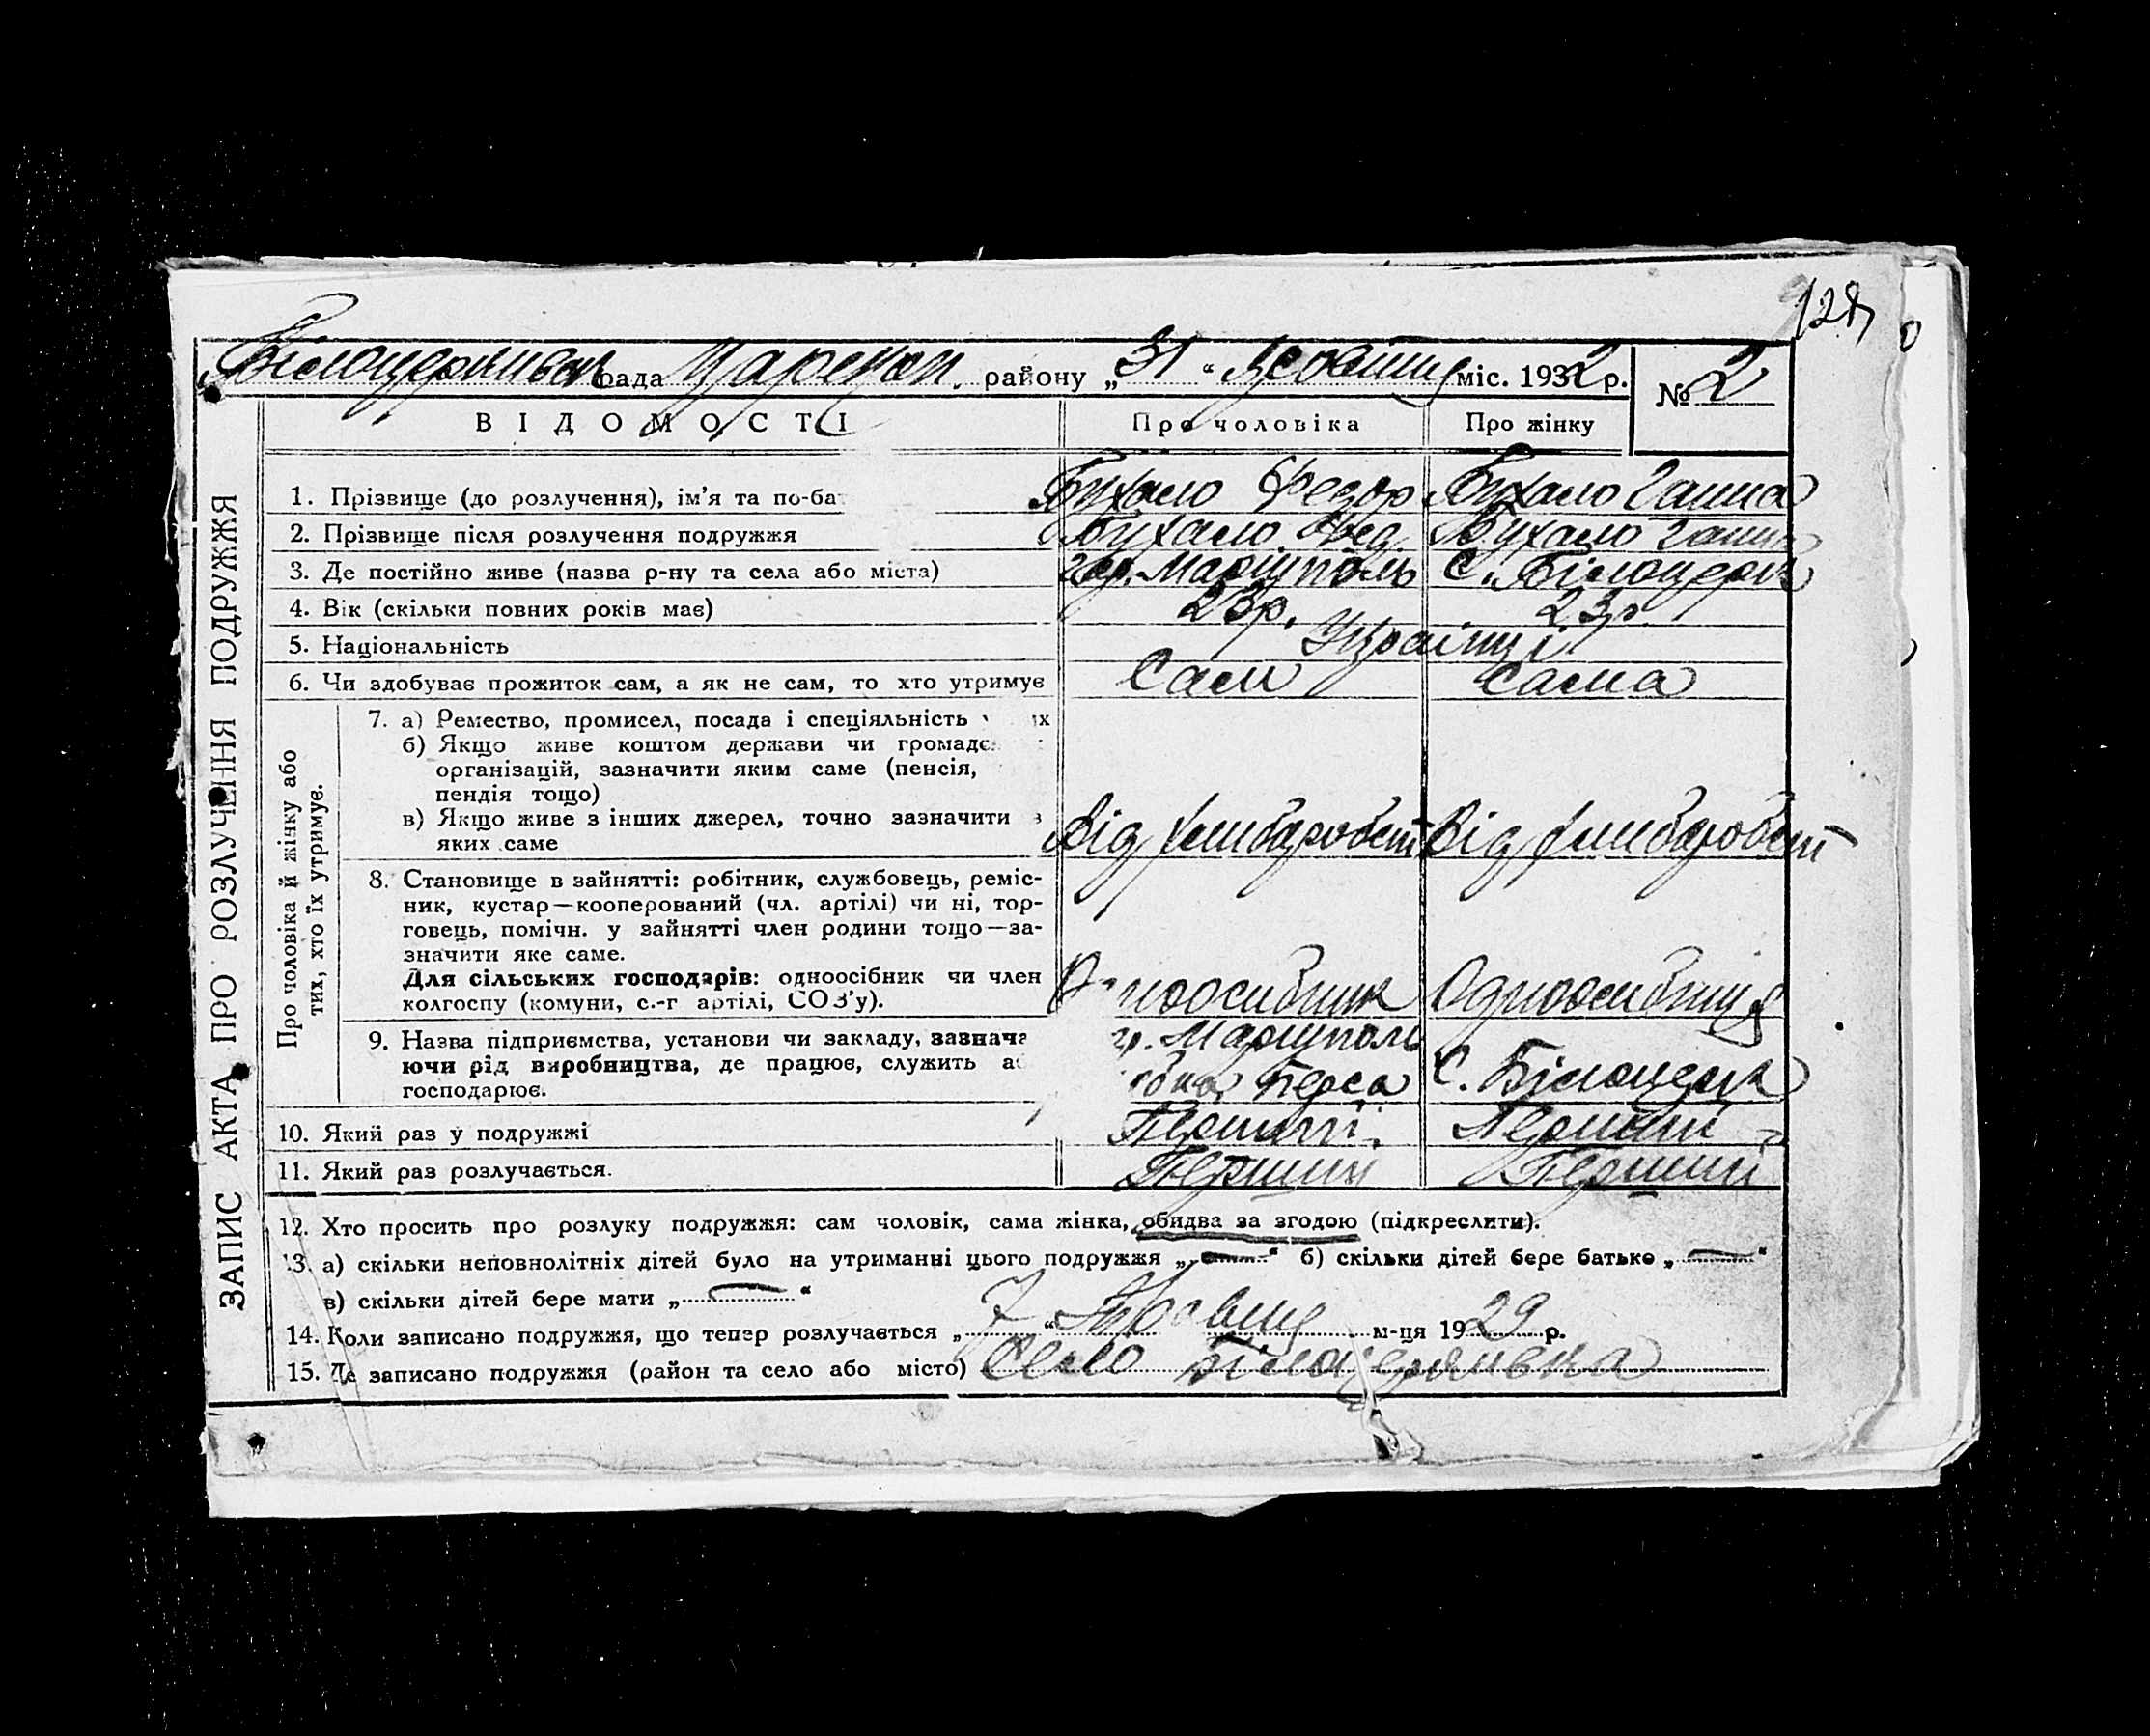 128
Білоцерківськ рада Царекон. району „31“ Жовтня міс. 1932 р. № 2
ВІДОМОСТІ Про чоловіка Про жінку
1. Прізвище (до розлучення), ім’я та по-ба Бухало Федор Бухало Ганна
2. Прізвище після розлучення подружжя Бухало Фед. Бухало Ганна
3. Де постійно живе (назва р-ну та села або міста) гор. Маріуполь С. Білоцерк
4. Вік (скільки повних років має) 23р. 23р.
5. Національність Українці
6. Чи здобуває прожиток сам, а як не сам, то хто утримує Сам Сама
Про чоловіка й жінку або тих, хто їх утримує.
7. а) Ремество, промисел, посада і спеціяльність
б) Якщо живе коштом держави чи громадс
організацій, зазначити яким саме (пенсія,
пендія тощо)
в) Якщо живе з інших джерел, точно зазначити з
яких саме Від хлібаробст Від хлібаробст
8. Становище в зайнятті: робітник, службовець, реміс-
ник, кустар—кооперований (чл. артілі) чи ні, тор-
говець, помічн. у зайнятті член родини тощо—за-
значити яке саме.
Для сільських господарів: одноосібник чи член
колгоспу (комуни, с.-г артілі, СОЗ’у). Одноосибник Одноосибниця
9. Назва підприємства, установи чи закладу, зазнача гр. Маріуполь
ючи рід виробництва, де працює, служить а С. Білоцерк
господарює.
10. Який раз у подружжі Перший. Перший
11. Який раз розлучається. Перший Перший
12. Хто просить про розлуку подружжя: сам чоловік, сама жінка, обидва за згодою (підкреслити).
13. а) скільки неповнолітніх дітей було на утриманні цього подружжя „—“ б) скільки дітей бере батько „—“
в) скільки дітей бере мати „—“
14. Коли записано подружжя, що тепер розлучається „7“ Травня м-ця 1929 р.
15. Де записано подружжя (район та село або місто) Село Білоцерківка
ЗАПИС АКТА ПРО РОЗЛУЧЕННЯ ПОДРУЖЖЯ